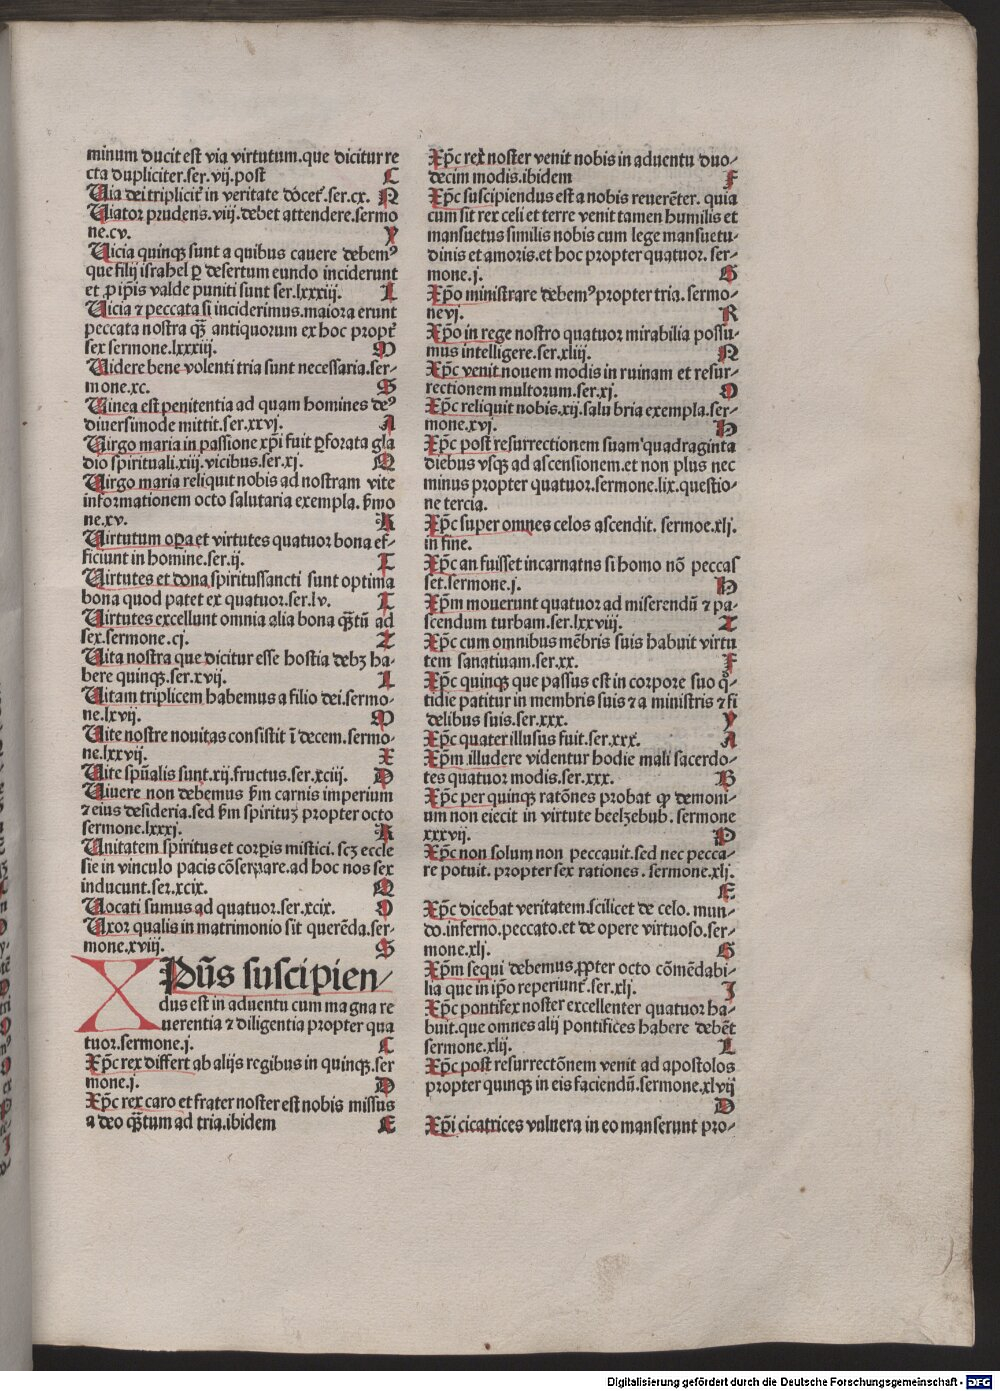 minum ducit est via virtutum.que dicitur re
cta dupliciter.ser.vij.post C
Uia dei triplicit᷑ in veritate docet᷑.ser.cx. N
Uiator prudens.viij.debet attendere.sermo
ne.cv. Y
Uicia quinqꝫ sunt a quibus cauere debemꝰ
que filij israhel ꝑ desertum eundo inciderunt
et ꝓ ip̄is valde puniti sunt ser.lxxxiij. L
Uicia ⁊ peccata si inciderimus.maiora erunt
peccata nostra qꝫ̄ antiquorum ex hoc propt᷑
sex sermone.lxxxiij. M
Uidere bene volenti tria sunt necessaria.ser-
mone.xc. S
Uinea est penitentia ad quam homines deꝰ
diuersimode mittit.ser.xxvj. A
Uirgo maria in passione xp̄i fuit ꝑforata gla
dio spirituali.xiij.vicibus.ser.xj. Q
Uirgo maria reliquit nobis ad nostram vite
informationem octo salutaria exempla. s̄mo
ne.xv. K
Uirtutum oꝑa et virtutes quatuor bona ef-
ficiunt in homine.ser.ij. T
Uirtutes et dona spiritussancti sunt optima
bona quod patet ex quatuor.ser.lv. T
Uirtutes excellunt omnia alia bona qꝫ̄tū ad
sex.sermone.cj. Z
Uita nostra que dicitur esse hostia debꝫ ha-
bere quinqꝫ.ser.xvij. L
Uitam triplicem habemus a filio dei.sermo-
ne.lxvij. M
Uite nostre nouitas consistit ī decem.sermo-
ne.lxxvij. X
Uite sp̄ualis sunt.xij.fructus.ser.xciij. D
Uiuere non debemus s̄m carnis imperium
⁊ eius desideria.sed s̄m spirituꝫ propter octo
sermone.lxxxj. K
Unitatem spiritus et corꝑis mistici. scꝫ eccle
sie in vinculo pacis cōseruare.ad hoc nos sex
inducunt.ser.xcix. Q
Uocati sumus ad quatuor.ser.xcix. O
Uxor qualis in matrimonio sit querēda.ser-
mone.xviij. S
XPūs suscipien/
dus est in aduentu cum magna re
uerentia ⁊ diligentia propter qua
tuor.sermone.j. C
Xp̄c rex differt ab alijs regibus in quinqꝫ.ser
mone.j. D
Xp̄c rex caro et frater noster est nobis missus
a deo qꝫ̄tum ad tria.ibidem E
Xp̄c rex noster venit nobis in aduentu duo-
decim modis.ibidem F
Xp̄c suscipiendus est a nobis reuerēter. quia
cum sit rex celi et terre venit tamen humilis et
mansuetus similis nobis cum lege mansuetu-
dinis et amoris.et hoc propter quatuor. ser-
mone.j. G
Xp̄o ministrare debemꝰ propter tria. sermo-
ne vj. R
Xp̄o in rege nostro quatuor mirabilia possu-
mus intelligere.ser.xliij. N
Xp̄c venit nouem modis in ruinam et resur-
rectionem multorum.ser.xj. O
Xp̄c reliquit nobis.xij.salu bria exempla.ser-
mone.xvj. H
Xp̄c post resurrectionem suam quadraginta
diebus vsqꝫ ad ascensionem.et non plus nec
minus propter quatuor.sermone.lix.questio-
ne tercia.
Xp̄c super omnes celos ascendit. sermoe.xlj.
in fine.
Xp̄c an fuisset incarnatns si homo nō peccas
set.sermone.j. H
Xp̄m mouerunt quatuor ad miserendū ⁊ pa-
scendum turbam.ser.lxxviij. Z
Xp̄c cum omnibus mēbris suis habuit virtu
tem sanatiuam.ser.xx. F
Xp̄c quinqꝫ que passus est in corpore suo qͦ-
tidie patitur in membris suis ⁊ a ministris ⁊ fi
delibus suis.ser.xxx. Y
Xp̄c quater illusus fuit.ser.xxx. A
Xp̄m illudere videntur hodie mali sacerdo-
tes quatuor modis.ser.xxx. B
Xp̄c per quinqꝫ ratōnes probat ꝙ demoni-
um non eiecit in virtute beelzebub. sermone
xxxvij. P
Xp̄c non solum non peccauit.sed nec pecca-
re potuit. propter sex rationes. sermone.xlj.
E
Xp̄c dicebat veritatem.scilicet de celo. mun-
do.inferno.peccato.et de opere virtuoso.ser-
mone.xlj. G
Xp̄m sequi debemus.ꝓpter octo cōmēdabi-
lia que in ip̄o reperiunt᷑.ser.xlj. J
Xp̄c pontifex noster excellenter quatuor ha-
buit.que omnes alij pontifices habere debēt
sermone.xlij. L
Xp̄c post resurrectōnem venit ad apostolos
propter quinqꝫ in eis faciendū.sermone.xlvij
D
Xp̄i cicatrices vulnera in eo manserunt pro-
Digitalisierung gefördert durch die Deutsche Forschungsgemeinschaft - DFG